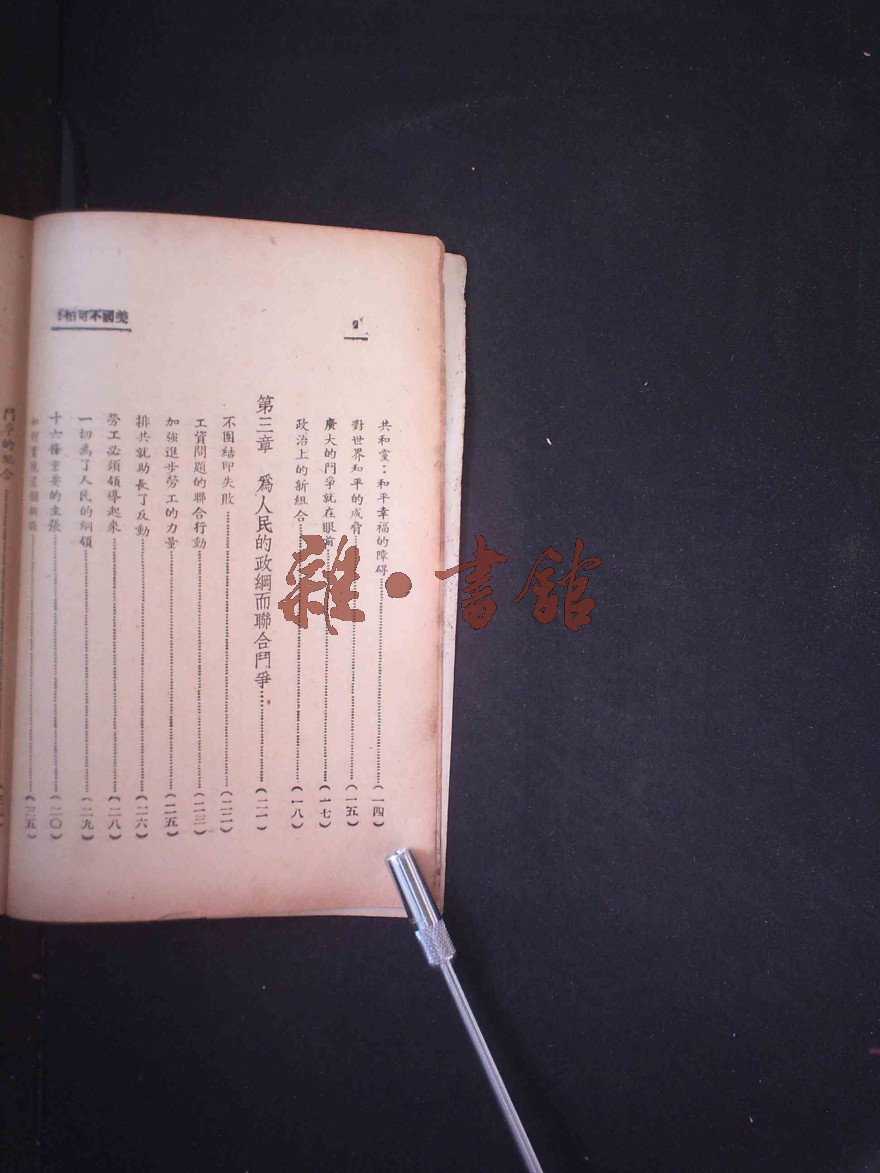 美國不可怕!
2
共和黨：和平幸福的障碍……（一四）
對世界和平的威脅……（一五）
廣大的鬥爭就在眼前……（一七）
政治上的新組合……（一八）
第三章　爲人民的政綱而聯合鬥爭……（二一）
不團結即失敗……（二二）
工資問題的聯合行動……（二三）
加強進步勞工的力量……（二五）
排共就助長了反動……（二六）
勞工必須領導起來……（二八）
一切爲了人民的綱領……（二九）
十六條重要的主張……（三〇）
如何實現這個綱領……（三五）
雜·書館